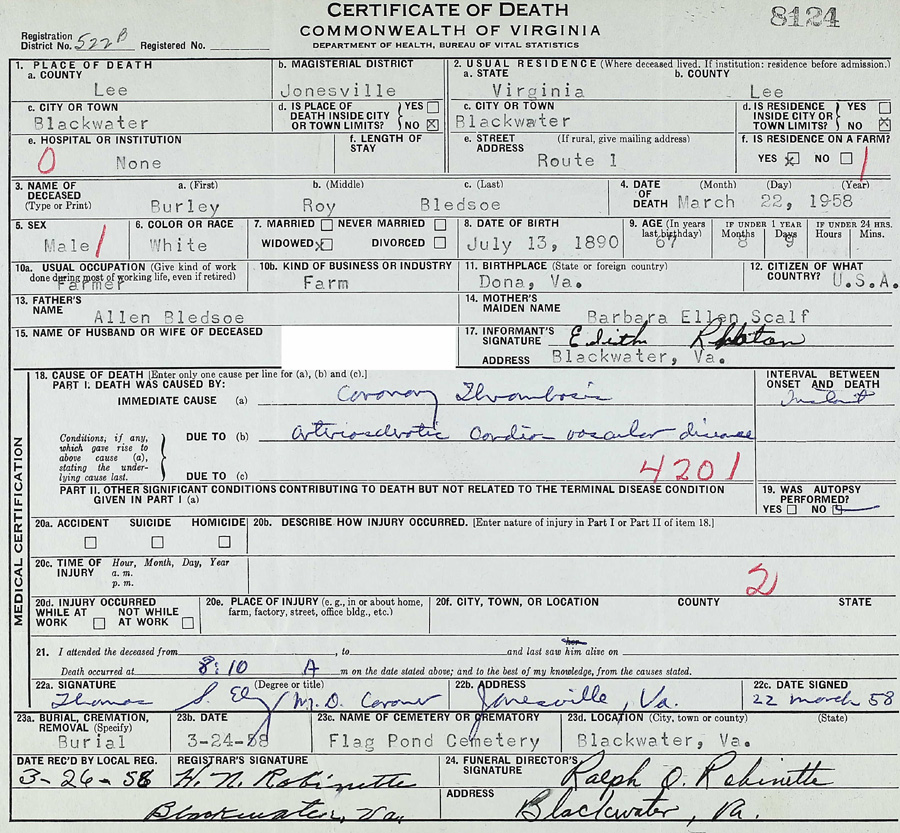 CERTIFICATE OF DEATH
8124
COMMONWEALTH OF VIRGINIA
DEPARTMENT OF HEALTH, BUREAU OF VITAL STATISTICS
Registration District No. 522B Registered No.
1. PLACE OF DEATH
a. COUNTY
Lee
b. MAGISTERIAL DISTRICT
Jonesville
2. USUAL RESIDENCE (Where deceased lived. If institution: residence before admission.)
a. STATE
Virginia
b. COUNTY
Lee
c. CITY OR TOWN
Blackwater
d. IS PLACE OF DEATH INSIDE CITY OR TOWN LIMITS? YES NO
c. CITY OR TOWN
Blackwater
d. IS RESIDENCE INSIDE CITY OR TOWN LIMITS? YES NO
e. HOSPITAL OR INSTITUTION
0 None
f. LENGTH OF STAY
e. STREET ADDRESS (If rural, give mailing address)
Route 1
f. IS RESIDENCE ON A FARM?
YES NO 1
3. NAME OF DECEASED (Type or Print)
a. (First) b. (Middle) c. (Last)
Burley Roy Bledsoe
4. DATE OF DEATH (Month) (Day) (Year)
March 22, 1958
5. SEX
Male 1
6. COLOR OR RACE
White
7. MARRIED NEVER MARRIED
WIDOWED DIVORCED
8. DATE OF BIRTH
July 13, 1890
9. AGE (In years last birthday)
67
IF UNDER 1 YEAR
Months Days
8 9
IF UNDER 24 HRS.
Hours Mins.
10a. USUAL OCCUPATION (Give kind of work done during most of working life, even if retired)
Farmer
10b. KIND OF BUSINESS OR INDUSTRY
Farm
11. BIRTHPLACE (State or foreign country)
Dona, Va.
12. CITIZEN OF WHAT COUNTRY?
U.S.A.
13. FATHER'S NAME
Allen Bledsoe
14. MOTHER'S MAIDEN NAME
Barbara Ellen Scalf
15. NAME OF HUSBAND OR WIFE OF DECEASED
17. INFORMANT'S SIGNATURE Edith
ADDRESS Blackwater, Va.
MEDICAL CERTIFICATION
18. CAUSE OF DEATH [Enter only one cause per line for (a), (b) and (c).]
PART I. DEATH WAS CAUSED BY:
IMMEDIATE CAUSE (a) Coronary Thrombosis
INTERVAL BETWEEN ONSET AND DEATH
Instant
Conditions, if any, which gave rise to above cause (a), stating the underlying cause last.
DUE TO (b) arteriosclerotic cardio vascular disease
DUE TO (c)
4201
PART II. OTHER SIGNIFICANT CONDITIONS CONTRIBUTING TO DEATH BUT NOT RELATED TO THE TERMINAL DISEASE CONDITION GIVEN IN PART I (a)
19. WAS AUTOPSY PERFORMED?
YES NO
20a. ACCIDENT SUICIDE HOMICIDE
20b. DESCRIBE HOW INJURY OCCURRED. [Enter nature of injury in Part I or Part II of item 18.]
20c. TIME OF INJURY Hour, Month, Day, Year
a. m.
p. m.
2
20d. INJURY OCCURRED
WHILE AT WORK NOT WHILE AT WORK
20e. PLACE OF INJURY (e. g., in or about home, farm, factory, street, office bldg., etc.)
20f. CITY, TOWN, OR LOCATION COUNTY STATE
21. I attended the deceased from , to and last saw her him alive on
Death occurred at 8:10 A m on the date stated above; and to the best of my knowledge, from the causes stated.
22a. SIGNATURE (Degree or title)
Thomas S. Ely M.D. Coroner
22b. ADDRESS
Jonesville, Va.
22c. DATE SIGNED
22 march 58
23a. BURIAL, CREMATION, REMOVAL (Specify)
Burial
23b. DATE
3-24-58
23c. NAME OF CEMETERY OR CREMATORY
Flag Pond Cemetery
23d. LOCATION (City, town or county) (State)
Blackwater, Va.
DATE REC'D BY LOCAL REG.
3-26-58
REGISTRAR'S SIGNATURE
H. N. Robinette
Blackwater, Va.
24. FUNERAL DIRECTOR'S SIGNATURE
Ralph O. Robinette
ADDRESS
Blackwater, Va.